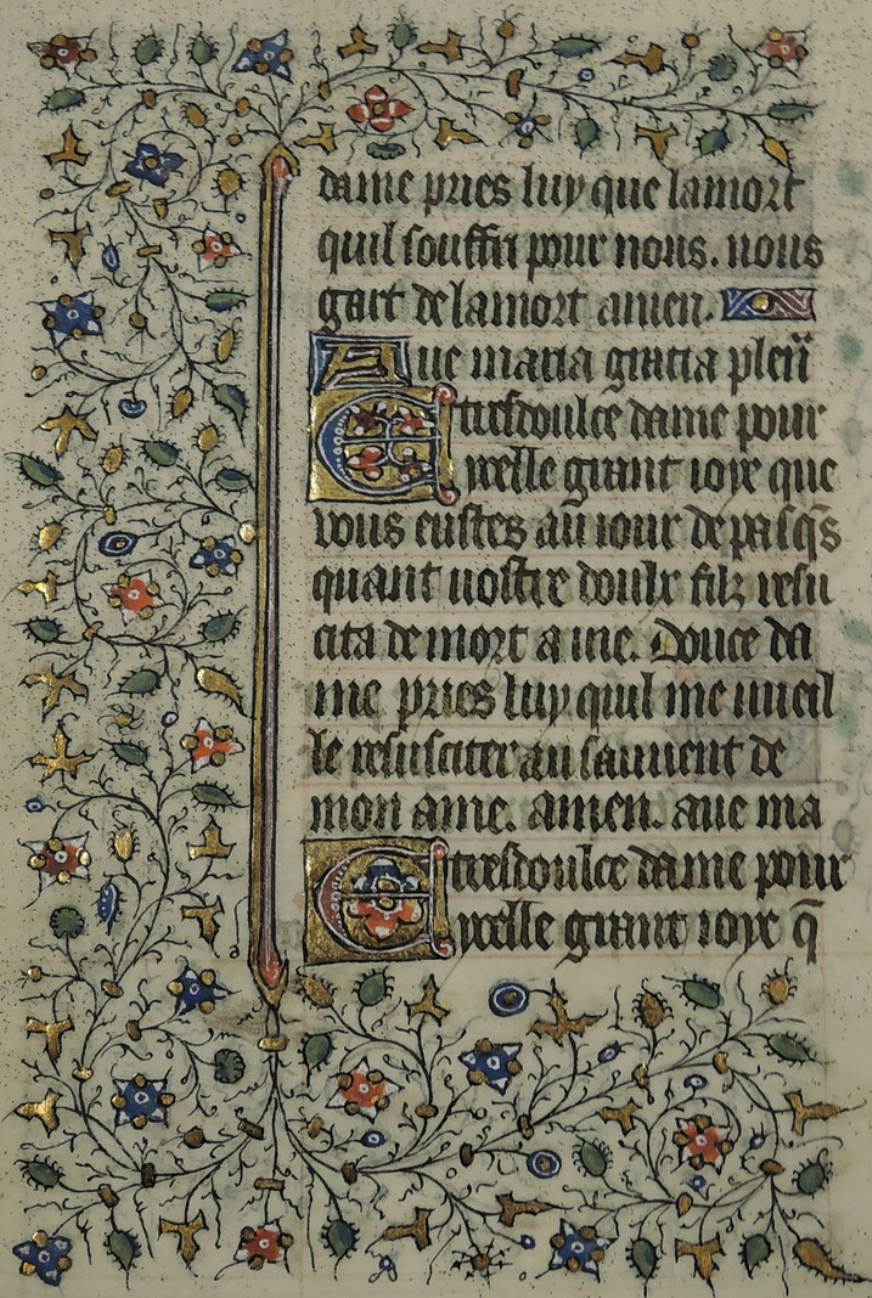 dame pries luy que la mort
quil souffri pour nous. nous
gart de la mort amen.
Aue maria gratia pleñ
E tresdoulce dame pour
ycelle grant ioye que
vous eustes au iour de pasq̄s
quant uostre doulx filz resu
cita de mort a uie. Douce da
me pries luy quil me vueil
le resusciter au sauuent de
mon ame. amen. aue ma
E tresdoulce dame pour
ycelle grant ioye q̄